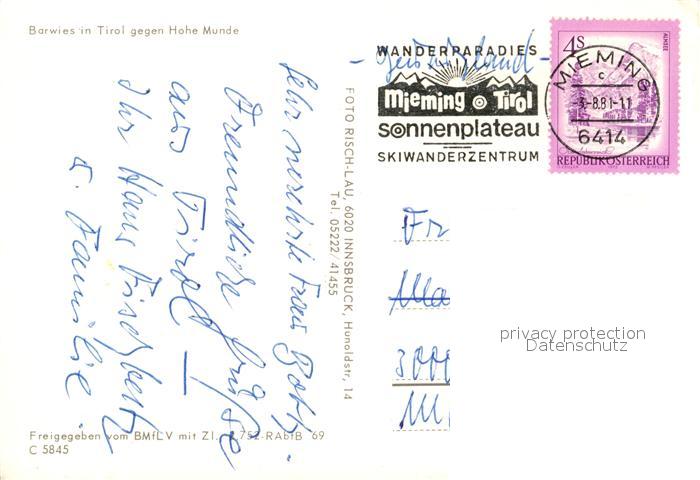 Barwies in Tirol gegen Hohe Munde
Sehr verehrte Frau
Freundliche Grüße
aus Tirol —
Ihr Hans
u. Familie.
Freigegeben vom BMfLV mit Zl. 752-RAbtB 69
C 5845
FOTO RISCH-LAU, 6020 INNSBRUCK, Hunoldstr, 14
Tel. 05222/41455
WANDERPARADIES
Mieming Tirol
sonnenplateau
SKIWANDERZENTRUM
4S
ALMSEE
MIEMING
c
-3.-8.81-11
6414
REPUBLIK ÖSTERREICH
Fr
3000
privacy protection
Datenschutz